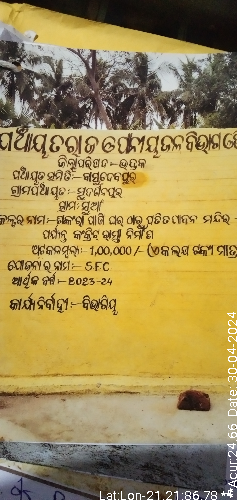 ପଞ୍ଚାୟତରାଜ ଓ ପାନୀୟ ଜଳ ବିଭାଗ ଓଡ଼ି
ଜିଲ୍ଲାପରିଷଦ :- ଭଦ୍ରକ
ପଞ୍ଚାୟତ ସମିତି :- ବାସୁଦେବପୁର
ଗ୍ରାମପଞ୍ଚାୟତ :- ସୁଦର୍ଶନପୁର
ଗ୍ରାମ:-
କଳ୍ପର ନାମ :- ପାଣି ଘର ଠାରୁ ମନ୍ଦିର
ପର୍ଯ୍ୟନ୍ତ କଂକ୍ରିଟ ରାସ୍ତା ନିର୍ମାଣ
ଅଟକଳମୂଲ୍ୟ:- 1,00,000/- (ଏକ ଲକ୍ଷ ଟଙ୍କା ମାତ୍ର
ଯୋଜନାର ନାମ :- S.F.C
ଆର୍ଥିକ ବର୍ଷ :- 2023-24
କାର୍ଯ୍ୟନିର୍ବାହୀ :- ବିଭାଗୀୟ
Lat:Lon-21.21,86.78 ** Acur:24.66 Date: 30-04-2024